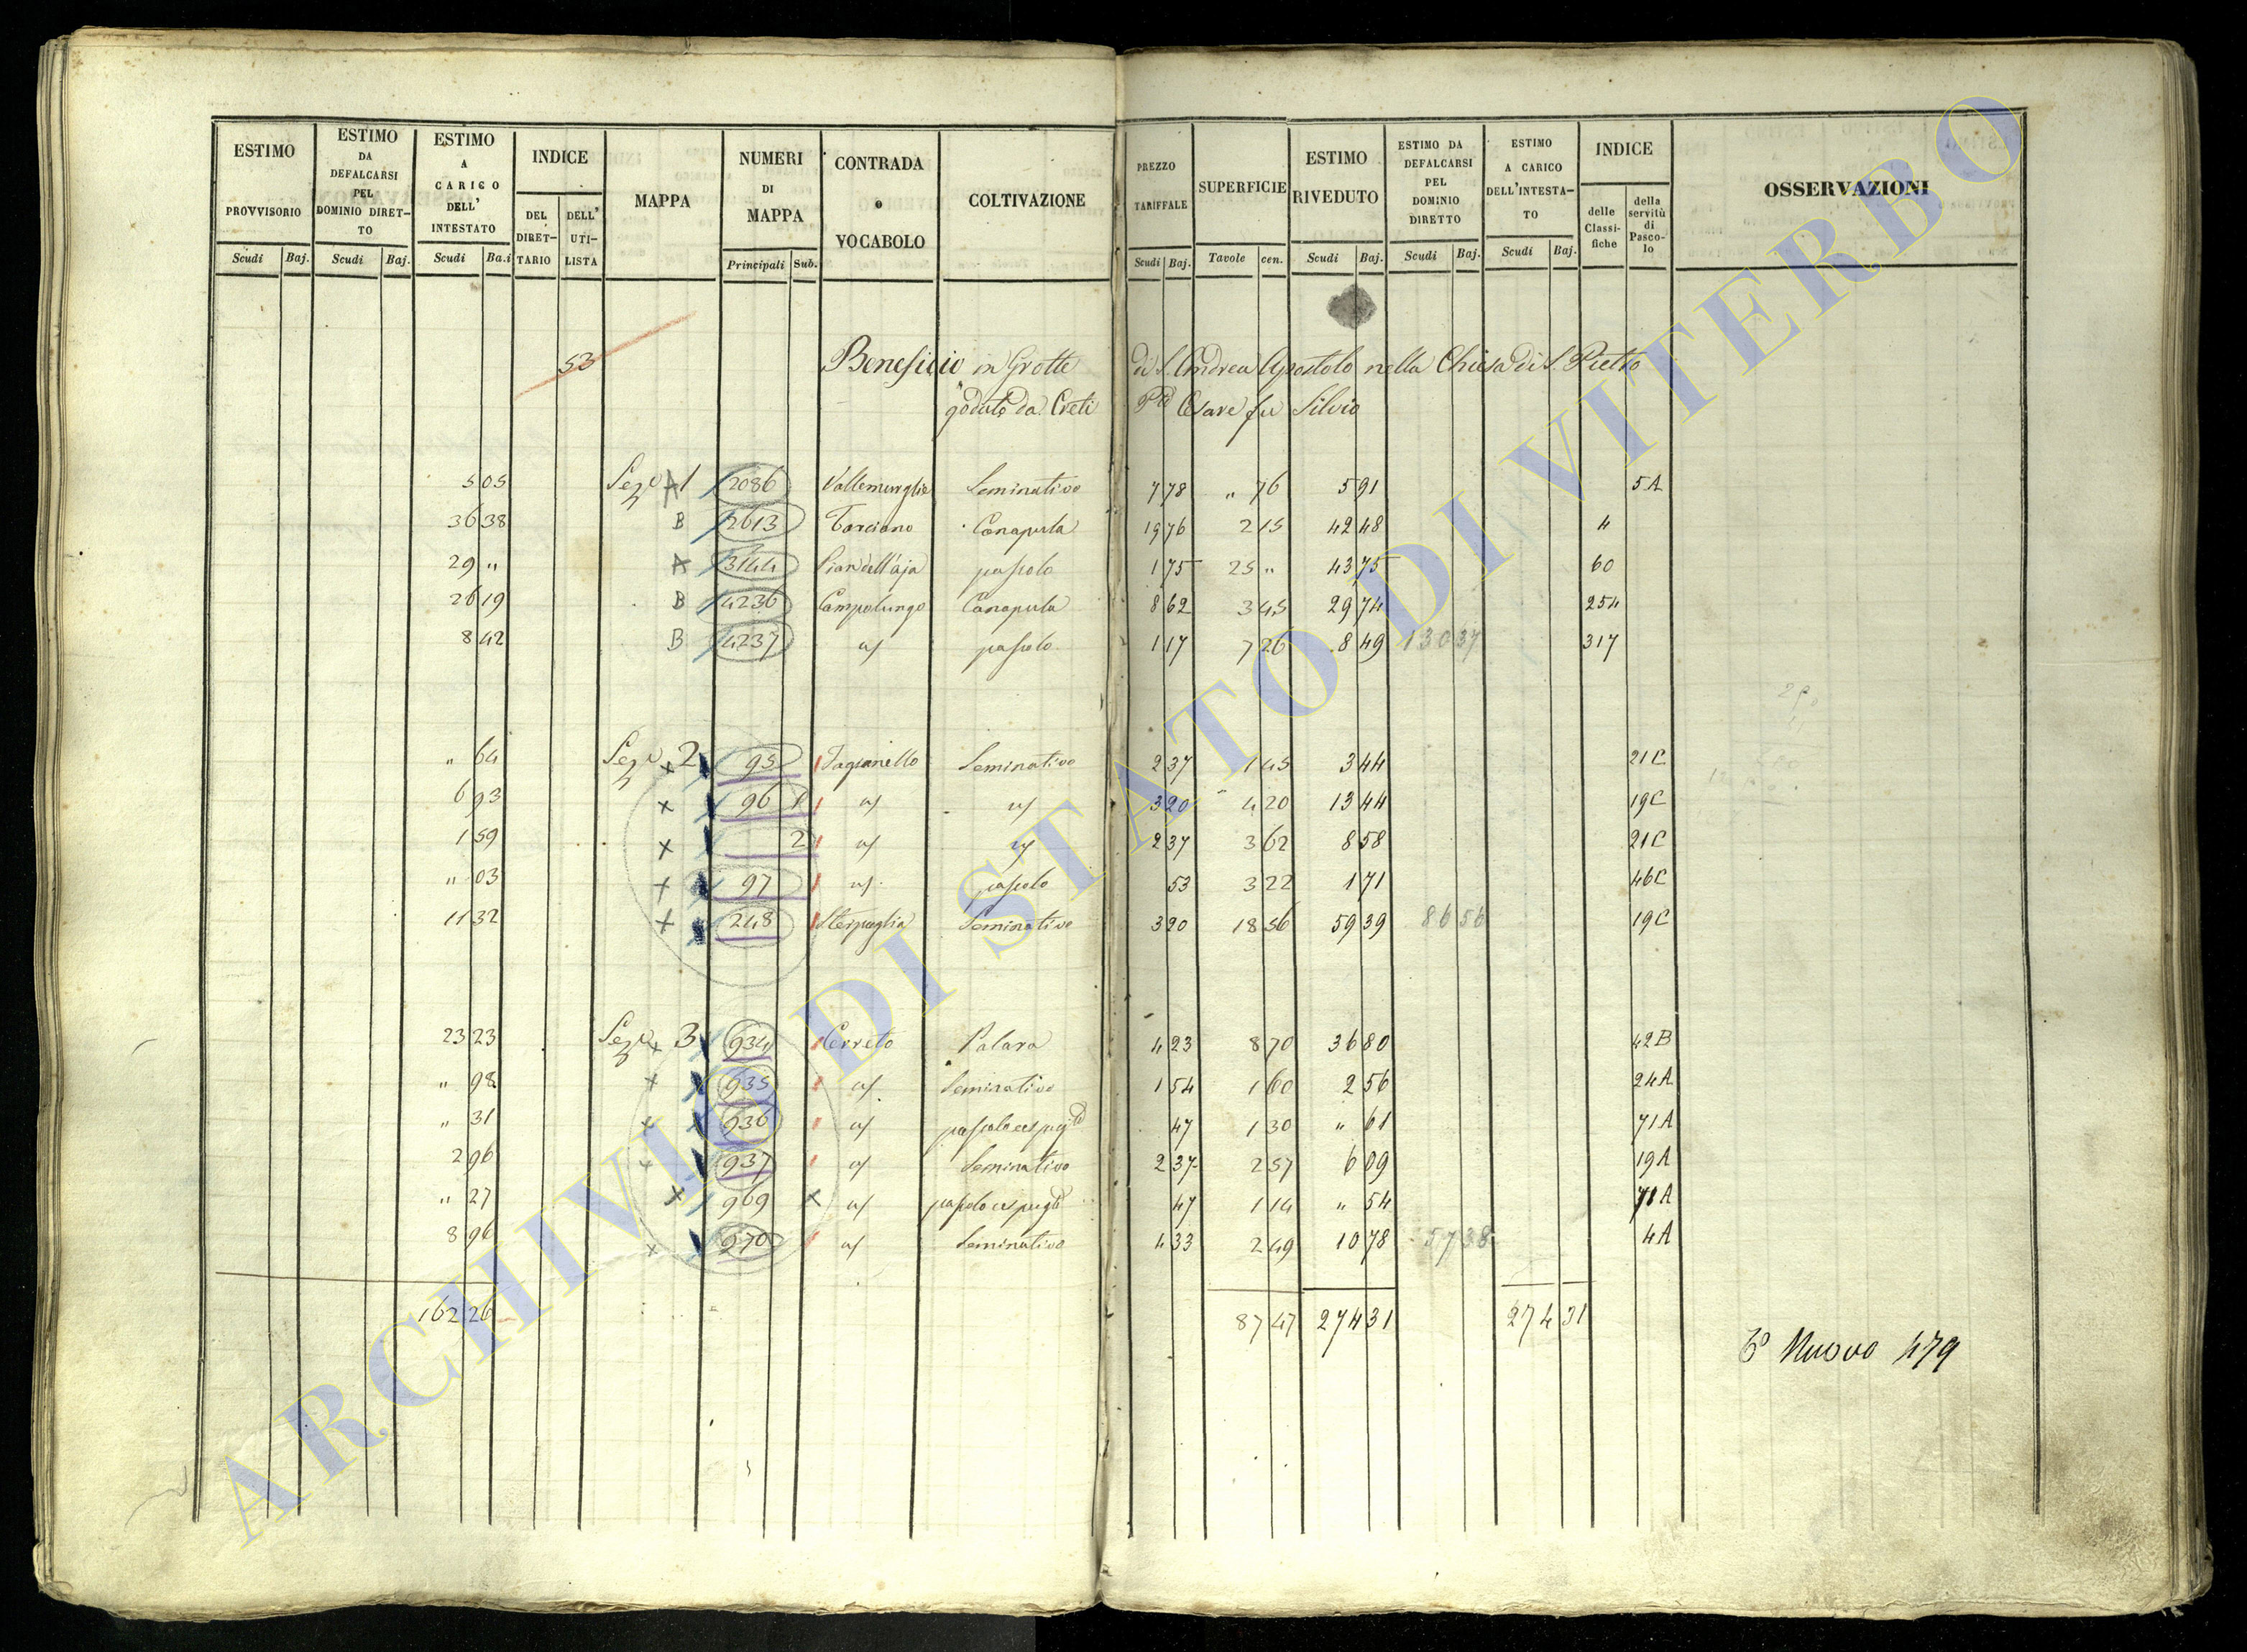 ESTIMO PROVVISORIO Scudi Baj.
ESTIMO DA DEFALCARSI PEL DOMINIO DIRET-TO Scudi Baj.
ESTIMO A CARICO DELL' INTESTATO Scudi Ba.i
INDICE DEL DIRET-TARIO DELL' UTI-LISTA
MAPPA
NUMERI DI MAPPA Principali Sub.
CONTRADA o VOCABOLO
COLTIVAZIONE
PREZZO TARIFFALE Scudi Baj.
SUPERFICIE Tavole cen.
ESTIMO RIVEDUTO Scudi Baj.
ESTIMO DA DEFALCARSI PEL DOMINIO DIRETTO Scudi Baj.
ESTIMO A CARICO DELL'INTESTA-TO Scudi Baj.
INDICE delle Classi-fiche della servitù di Pasco-lo
OSSERVAZIONI
53 Beneficio in Grotte di S. Andrea Apostolo nella Chiesa di S. Pietro
goduto da Creti Cesare fu Silvio
5 05 Sezne A 1 2086 Seminativo 7 78 " 76 5 91 5A
36 38 B 2613 Torciano Canapula 19 76 2 15 42 48 4
29 " A 3144 Pian dell'aja pascolo 1 75 25 " 43 75 60
26 19 B 4236 Campolungo Canapula 8 62 3 45 29 74 254
8 42 B 4237 a/ pascolo 1 17 7 26 8 49 130 37 317
" 64 Sezne x 2 95 Seminativo 2 37 1 45 3 44 21C
6 93 x 96 1 a/ a/ 3 20 4 20 13 44 19C
1 59 x 2 a/ a/ 2 37 3 62 8 58 21C
" 03 x 97 a/ pascolo 53 3 22 1 71 46C
11 32 x 248 Sterpaglia Seminativo 3 20 18 56 59 39 86 56 19C
23 23 Sezne x 3 934 Cerreto Palara 4 23 8 70 36 80 42B
" 98 x 935 a/ Seminativo 1 54 1 60 2 56 24A
" 31 x 936 a/ 47 1 30 " 61 71A
2 96 x 937 a/ Seminativo 2 37 2 57 6 09 19A
" 27 x 969 x a/ 47 1 14 " 54 71A
8 96 x 970 a/ Seminativo 4 33 2 49 10 78 57 38 4A
162 26 87 47 274 31 274 31
Nuovo 479
ARCHIVIO DI STATO DI VITERBO